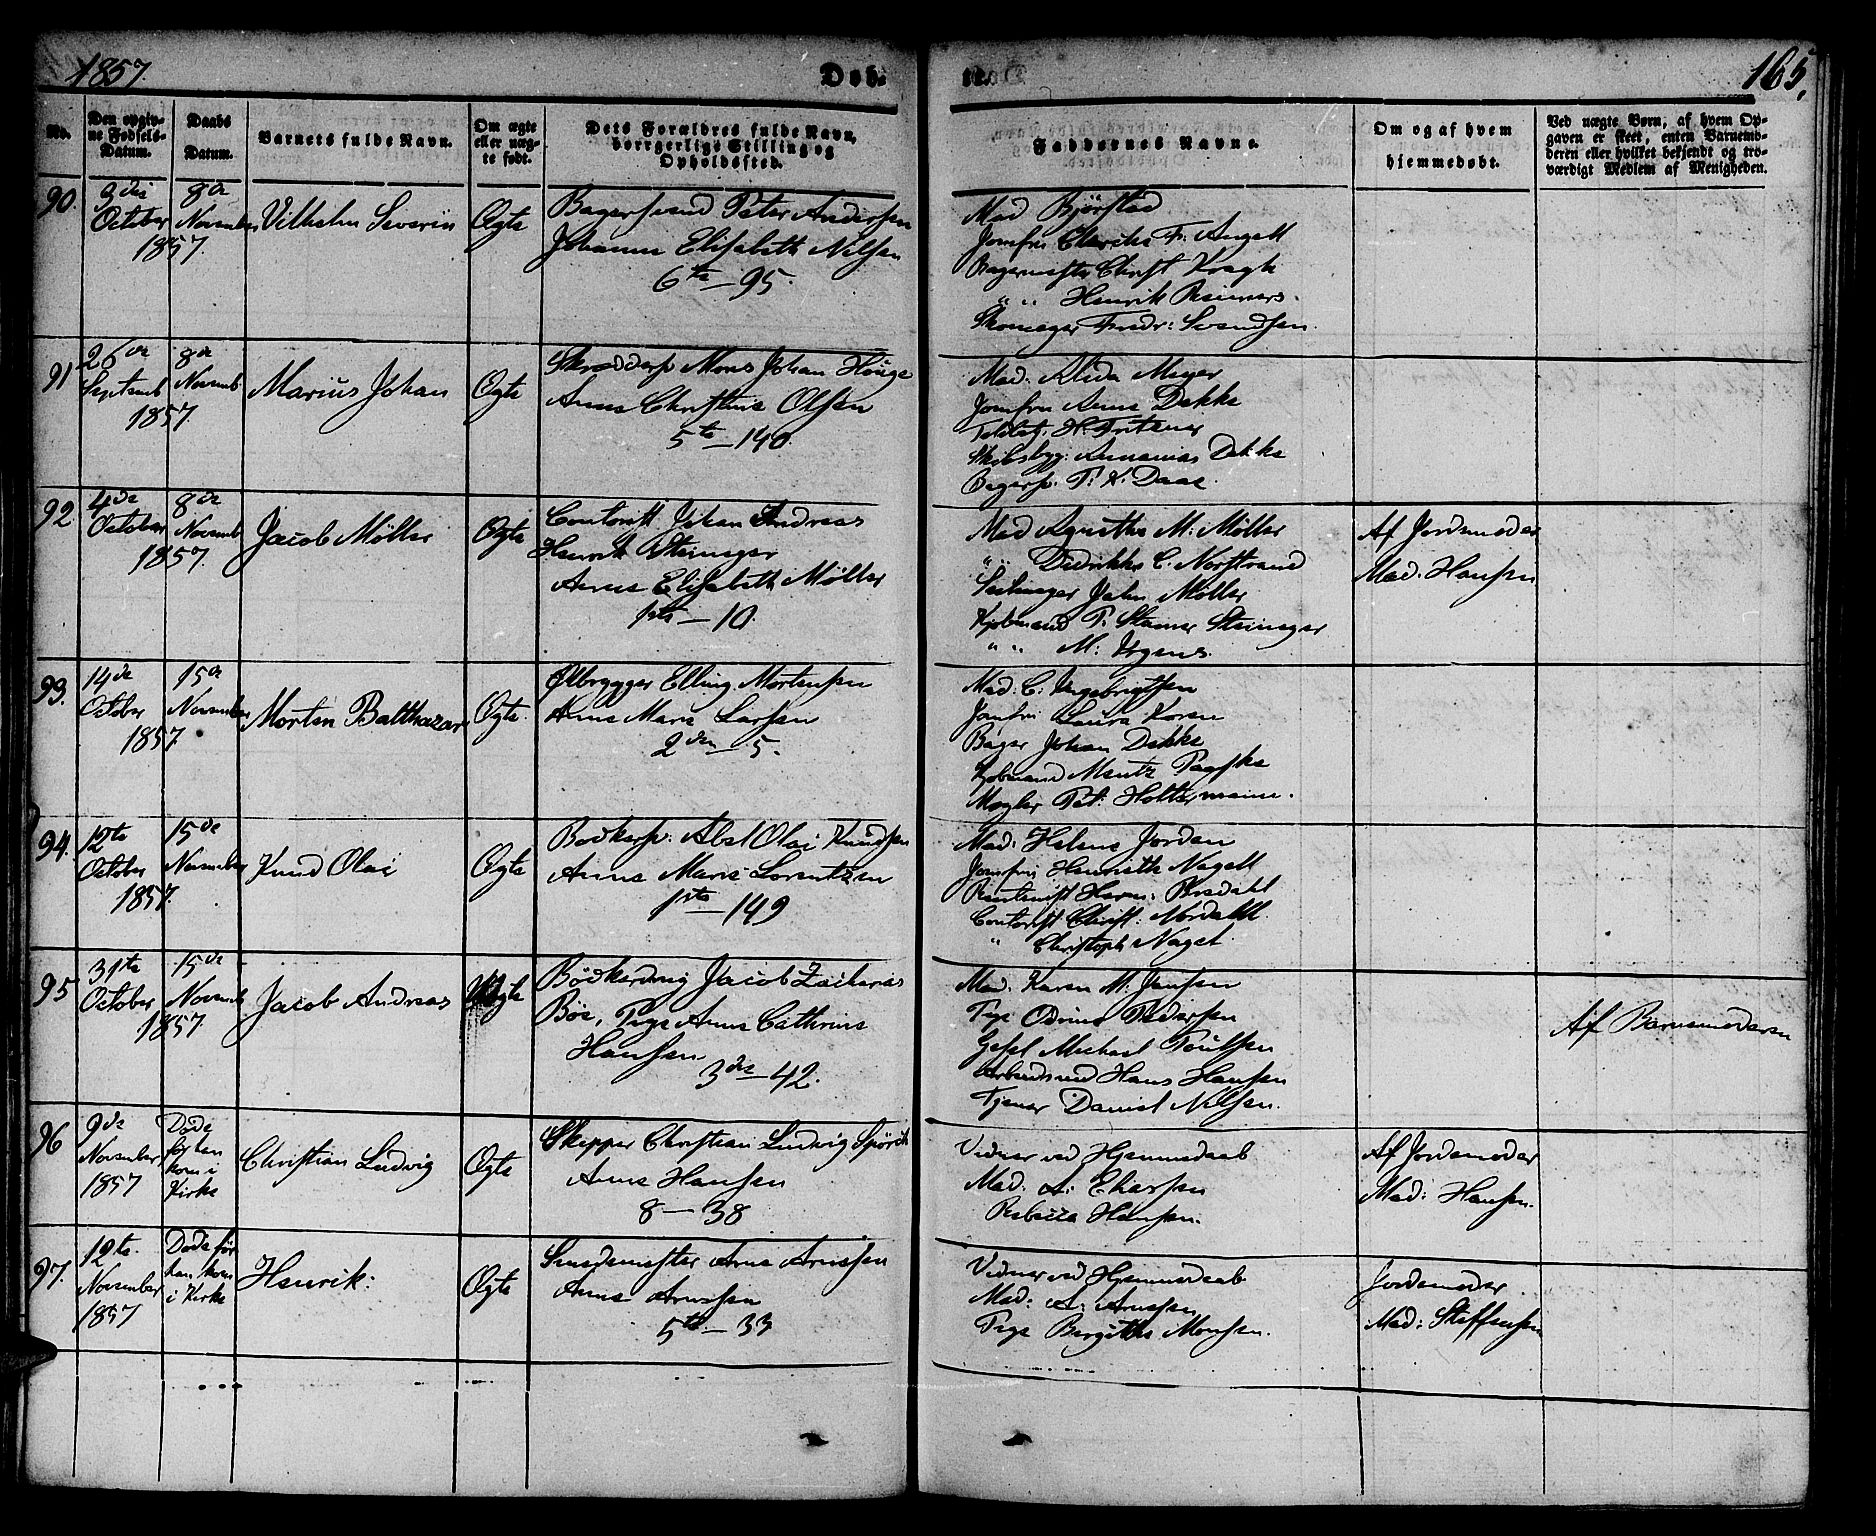 1857.
Døb
te.
165.
No.
Den opgiv-
ne Fødsels-
Datum.
Daabs
Datum.
Barnets fulde Navn.
Om ægte
eller uæg-
te født.
Dets Forældres fulde Navn,
borgerlige Stilling og
Opholdssted.
Faddernes Navne.
Om og af hvem
hjemmedøbt.
Ved uægte Børn, af hvem Op-
gaven er skeet, enten Barnemo-
deren eller hvilket bekjendt og tro-
værdigt Medlem af Menigheden.
90.
9de
October
1857.
8de
November
Vilhelm Severin
Ægte
Bagersvend Peter Andersen
Johanne Elisabeth Nilsen
6te – 95.
Mad Bjørstad
Jomfru Fr. Angell
Bagermester Christ Kragh
" " Henrik Reimers.
Skomager Fredr: Svendsen.
91
26de
Septemb
1857.
8de
Novemb
Marius Johan
Ægte
Skræddersv Mons Johan Houge
Anne Christine Olsen
5te – 140.
Mad. Alida Meyer
Jomfru Anne Dekke
H. Fritzner
Skibsbyg: Annanias Dekke
Bagersv. P. K. Daae.
92
4de
October
1857.
8de
Novemb
Jacob Møller
Ægte
Contorist Johan Andreas
Henrik Steineger
Anne Elisabeth Møller
1ste – 10.
Mad Agnethe M: Møller
" " Didrikke C. Norstrand
John Møller
Kjøbmand P. Stamer Steineger
" " M: Irgens.
Af Jordemoder
Mad. Hansen
93.
14de
October
1857
15de
November
Morten Balthazar
Ægte.
Ølbrygger Elling Mortensen
Anne Marie Larsen
2den – 5.
Mad. C: Ingebrigtsen
Jomfru Laura Koren
Bager Johan Dekke
Kjøbmand Mentz
Mægler Pet. Holtermann.
94.
12te
October
1857.
15de
November
Knud Olai
Ægte
Bødkersv. Abel Olai Knudsen
Anne Marie Lorentzen
1ste – 149
Mad. Helene Jordan
Jomfru Henriette Nagell
Herm:
Contorist Christ: Nordahl.
" Christoph Nagel.
95
31te
October
1857.
15de
Novemb
Jacob Andreas
Uægte
Bødkerdreng Jacob Zacharias
Böe, Pige Anne Cathrine
Hansen
3de – 42.
Mad. Karen M. Jensen
Pige Oline Pedersen
Gesel Michael Poulsen
Arbeidsmd Hans Hansen
Tjener Daniel Nilsen.
Af Barnemoderen
96
9de
November
1857
Døde
før han
kom i
Kirke
Christian Ludvig
Ægte
Skipper Christian Ludvig Spörck
Anne Hansen
8 – 38
Vidner ved Hjemmedaab
Mad. A: Ekersen
Rebecca Hansen.
Af Jordemoder
Mad: Hansen.
97.
12te.
November
1857
Døde før
han kom
i Kirke
Henrik:
Ægte
Smedemester Arne Arnesen
Anne Arnesen
5te – 33
Vidner ved Hjemmedaab
Mad: A. Arnesen
Pige Bergitte Monsen.
Jordemoder
Mad: Steffensen